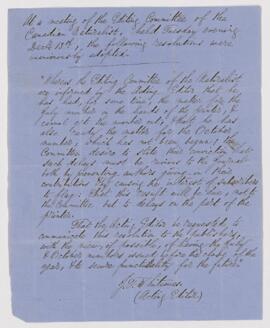 At a meeting of the Editing Committee of the
Canadian Naturalist, held Tuesday evening
the following resolutions were
unanimously adopted.
"Whereas the Editing Committee of the Naturalist
are informed by the Acting Editor that he
has had, for some time, the matter for the
July number in the hands of the printer, &
cannot get the number out; that he has
also ready the matter for the October
number, which has not been begun; the
Committee desire to state their conviction that
such delays must be ruinous to the journal
both by preventing authors giving
contributions & by causing the interest of subscribers
to flag; that this result will be due not to
the Committee but to delays on the part of the
printer.
That the Acting Editor be requested to
communicate this resolution to the publishers,
with the view, if possible, of having the July
& October numbers issued before the close of the
year, & to secure punctuality for the future."
(Acting Editor)